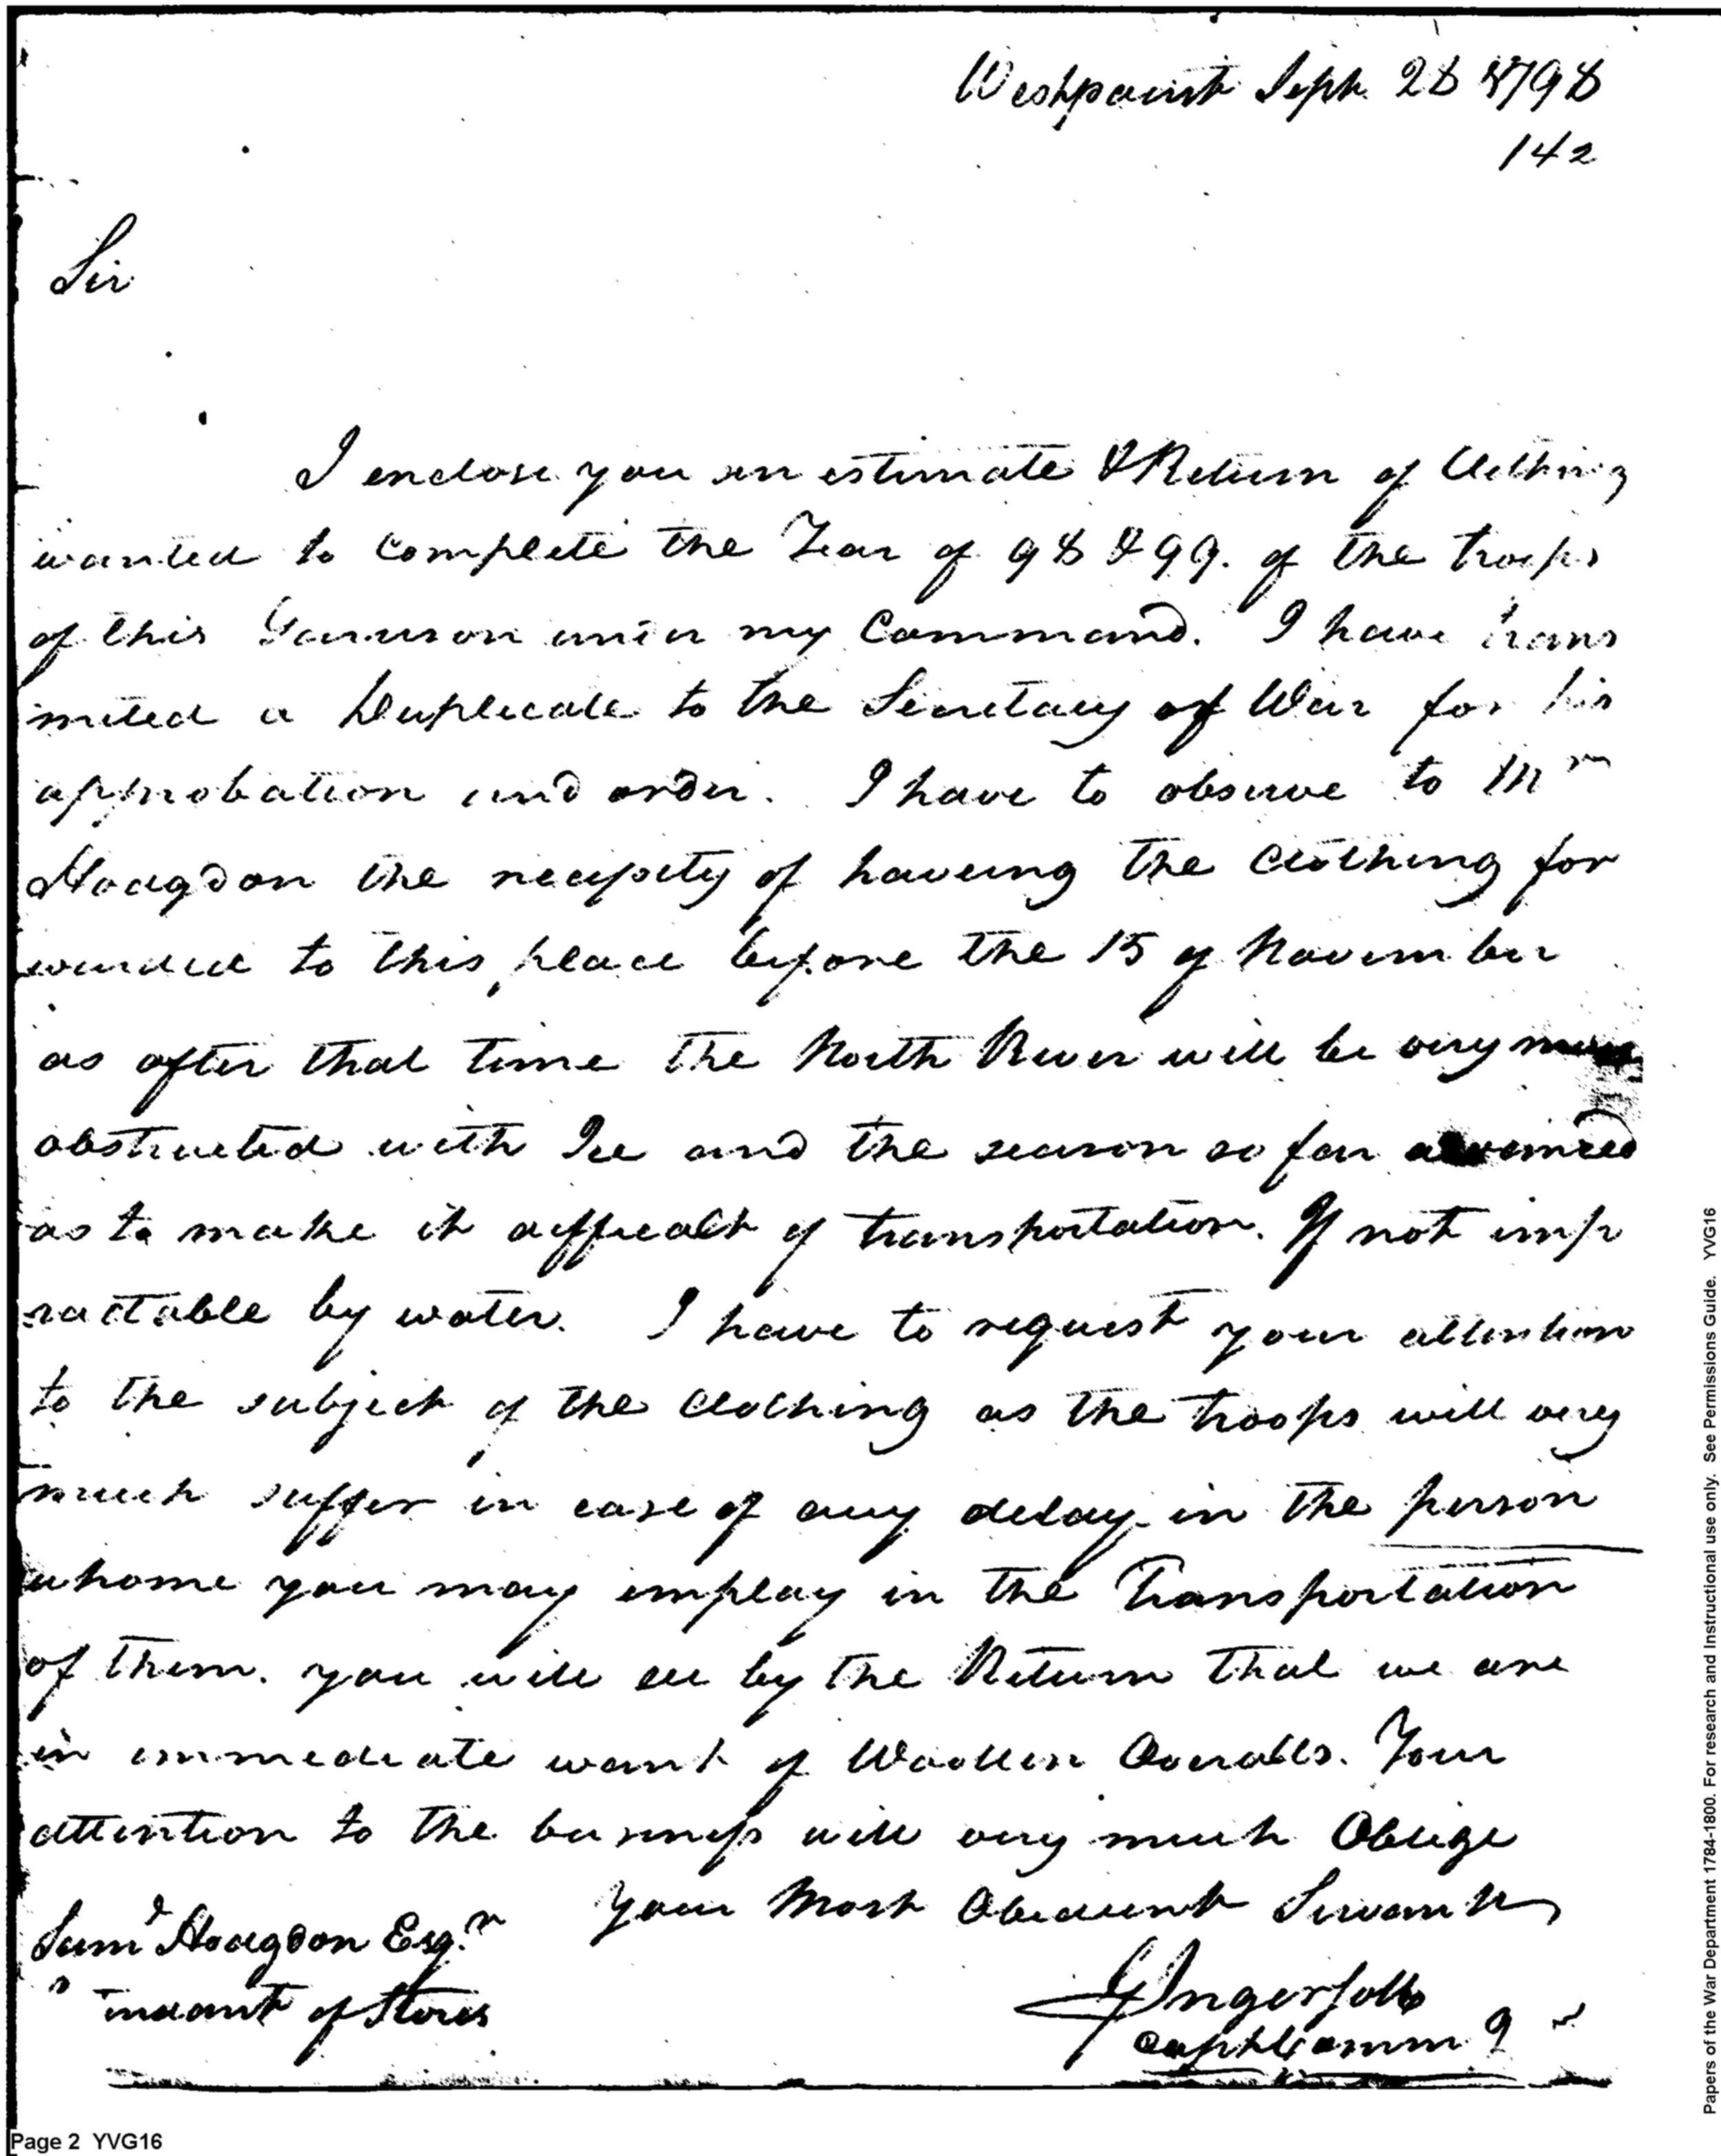 Westpoint Sept. 28 1798
142
Sir
I enclose you an estimate & Return of Clothing
wanted to Complete the Year of 98 & 99. of the troops
of this Garrison under my Command. I have trans
mited a Duplicate to the Secretary of War for his
approbation and order. I have to observe to Mr
Hodgdon the necessity of haveing the Clothing for
warded to this place before the 15 of November
as after that time the North River will be very much
obstructed with Ice and the season so far advanced
as to make it difficult of transportation. If not imp
ractable by water. I have to request your attention
to the subject of the Clothing as the troops will very
much suffer in case of any delay in the person
whome you may imploy in the Transportation
of them. you will see by the Return that we are
in immediate want of Woollen Overalls. Your
attention to the business will very much Oblige
Your Most Obedient Servant
Samd Hodgdon Esqr
of Stores
G Ingersoll
Capt Comm g
Page 2 YVG16
Papers of the War Department 1784-1800. For research and Instructional use only. See Permissions Guide. YVG16